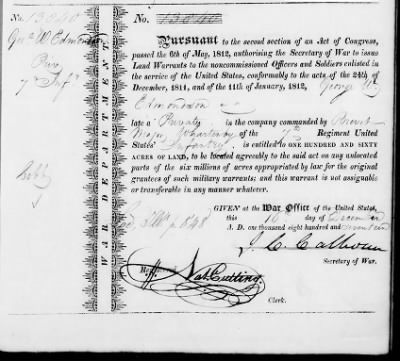 No. 13040
No. 13040
Geo. W Edmondson
Priv
7th Inf
WAR DEPARTMENT.
PURSUANT to the second section of an Act of Congress,
passed the 6th of May, 1812, authorising the Secretary of War to issue
Land Warrants to the noncommissioned Officers and Soldiers enlisted
in the service of the United States, conformably to the acts of the 24th of
December, 1811, and of the 11th of January, 1812, George W
Edmondson
late a Private in the company commanded by Brevet
Major 7th Regiment United
States' Infantry is entitled to ONE HUNDRED AND SIXTY
ACRES OF LAND, to be located agreeably to the said act on any unlocated
parts of the six millions of acres appropriated by law for the original
grantees of such military warrants; and this warrant is not assignable
or transferable in any manner whatever.
GIVEN at the War Office of the United States,
this 16 day of December
A. D. one thousand eight hundred and
J. C. Calhoun
Secretary of War.
Nat. Cutting
Clerk.